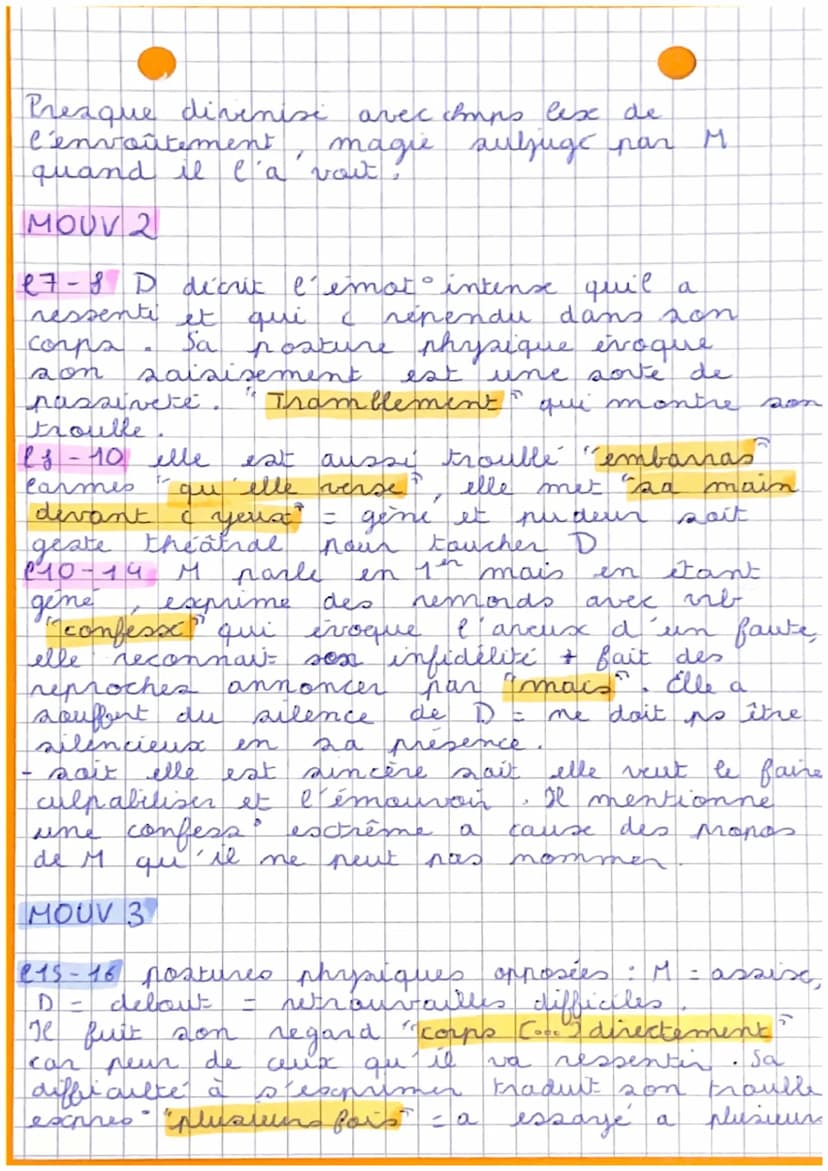 Presque divinisé avec chmps lex de
l'envoûtement, magie subjugé par M
quand il l'a voit.
MOUV 2
l7-8 D décrit l'émot° intense quil a
ressenti et qui c répendu dans son
corps. Sa posture physique évoque
son saisisement est une sorte de
passiveté. "Tramblement" qui montre son
trouble.
l8-10 elle est aussi troublé "embarras"
larmes "qu'elle verse", elle met "sa main
devant c yeux" = gène et pudeur soit
geste théâtral pour toucher D
l10-14 M parle en 1er mais en étant
géné, exprime des remords avec vrb
"confesse" qui évoque l'aveux d'un faute,
elle reconnait son infidélité + fait des
reproches annoncer par "mais". Elle a
souffert du silence de D = ne doit ps être
silencieux en sa présence.
- soit elle est sincère soit elle veut le faire
culpabiliser et l'émouvoir. Il mentionne
une confess° extrême a cause des propos
de M qu'il ne peut pas nommer.
MOUV 3
l15-16 postures physiques opposées : M = assise,
D = debout = retrouvailles difficiles.
Il fuit son regard "corps (...) directement"
car peur de ceux qu'il va ressentir. Sa
difficulté à s'exprimer traduit son trouble
express° "plusieurs fois" = a essayé a plusieurs